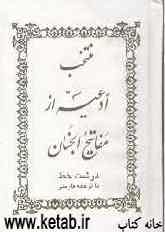 منتخب
ادعیه از
مفاتیح الجنان
درشت خط
با ترجمه فارسی
www.ketab.ir
خانه کتاب